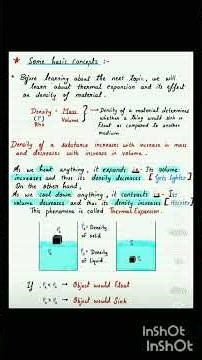 * Some basic concepts :-
• Before learning about the next topic, we will
learn about thermal expansion and its effect
on density of material.
Density = Mass
(ρ) Volume
Rho
→ Density of a material determines
whether a thing would sink or
float as compared to another
medium
Density of a substance increases with increase in mass
and decreases with increase in volume.
As we heat anything, it expands i.e. Its volume
increases and thus its density decreases [Gets lighter]
On the other hand,
As we cool down anything, it contracts i.e. Its
volume decreases and thus its density increases [Heavier]
This phenomena is called Thermal Expansion.
= Density
of solid
= Density
of liquid
If
→ Object would Float
→ Object would Sink
InShOt
InShOt